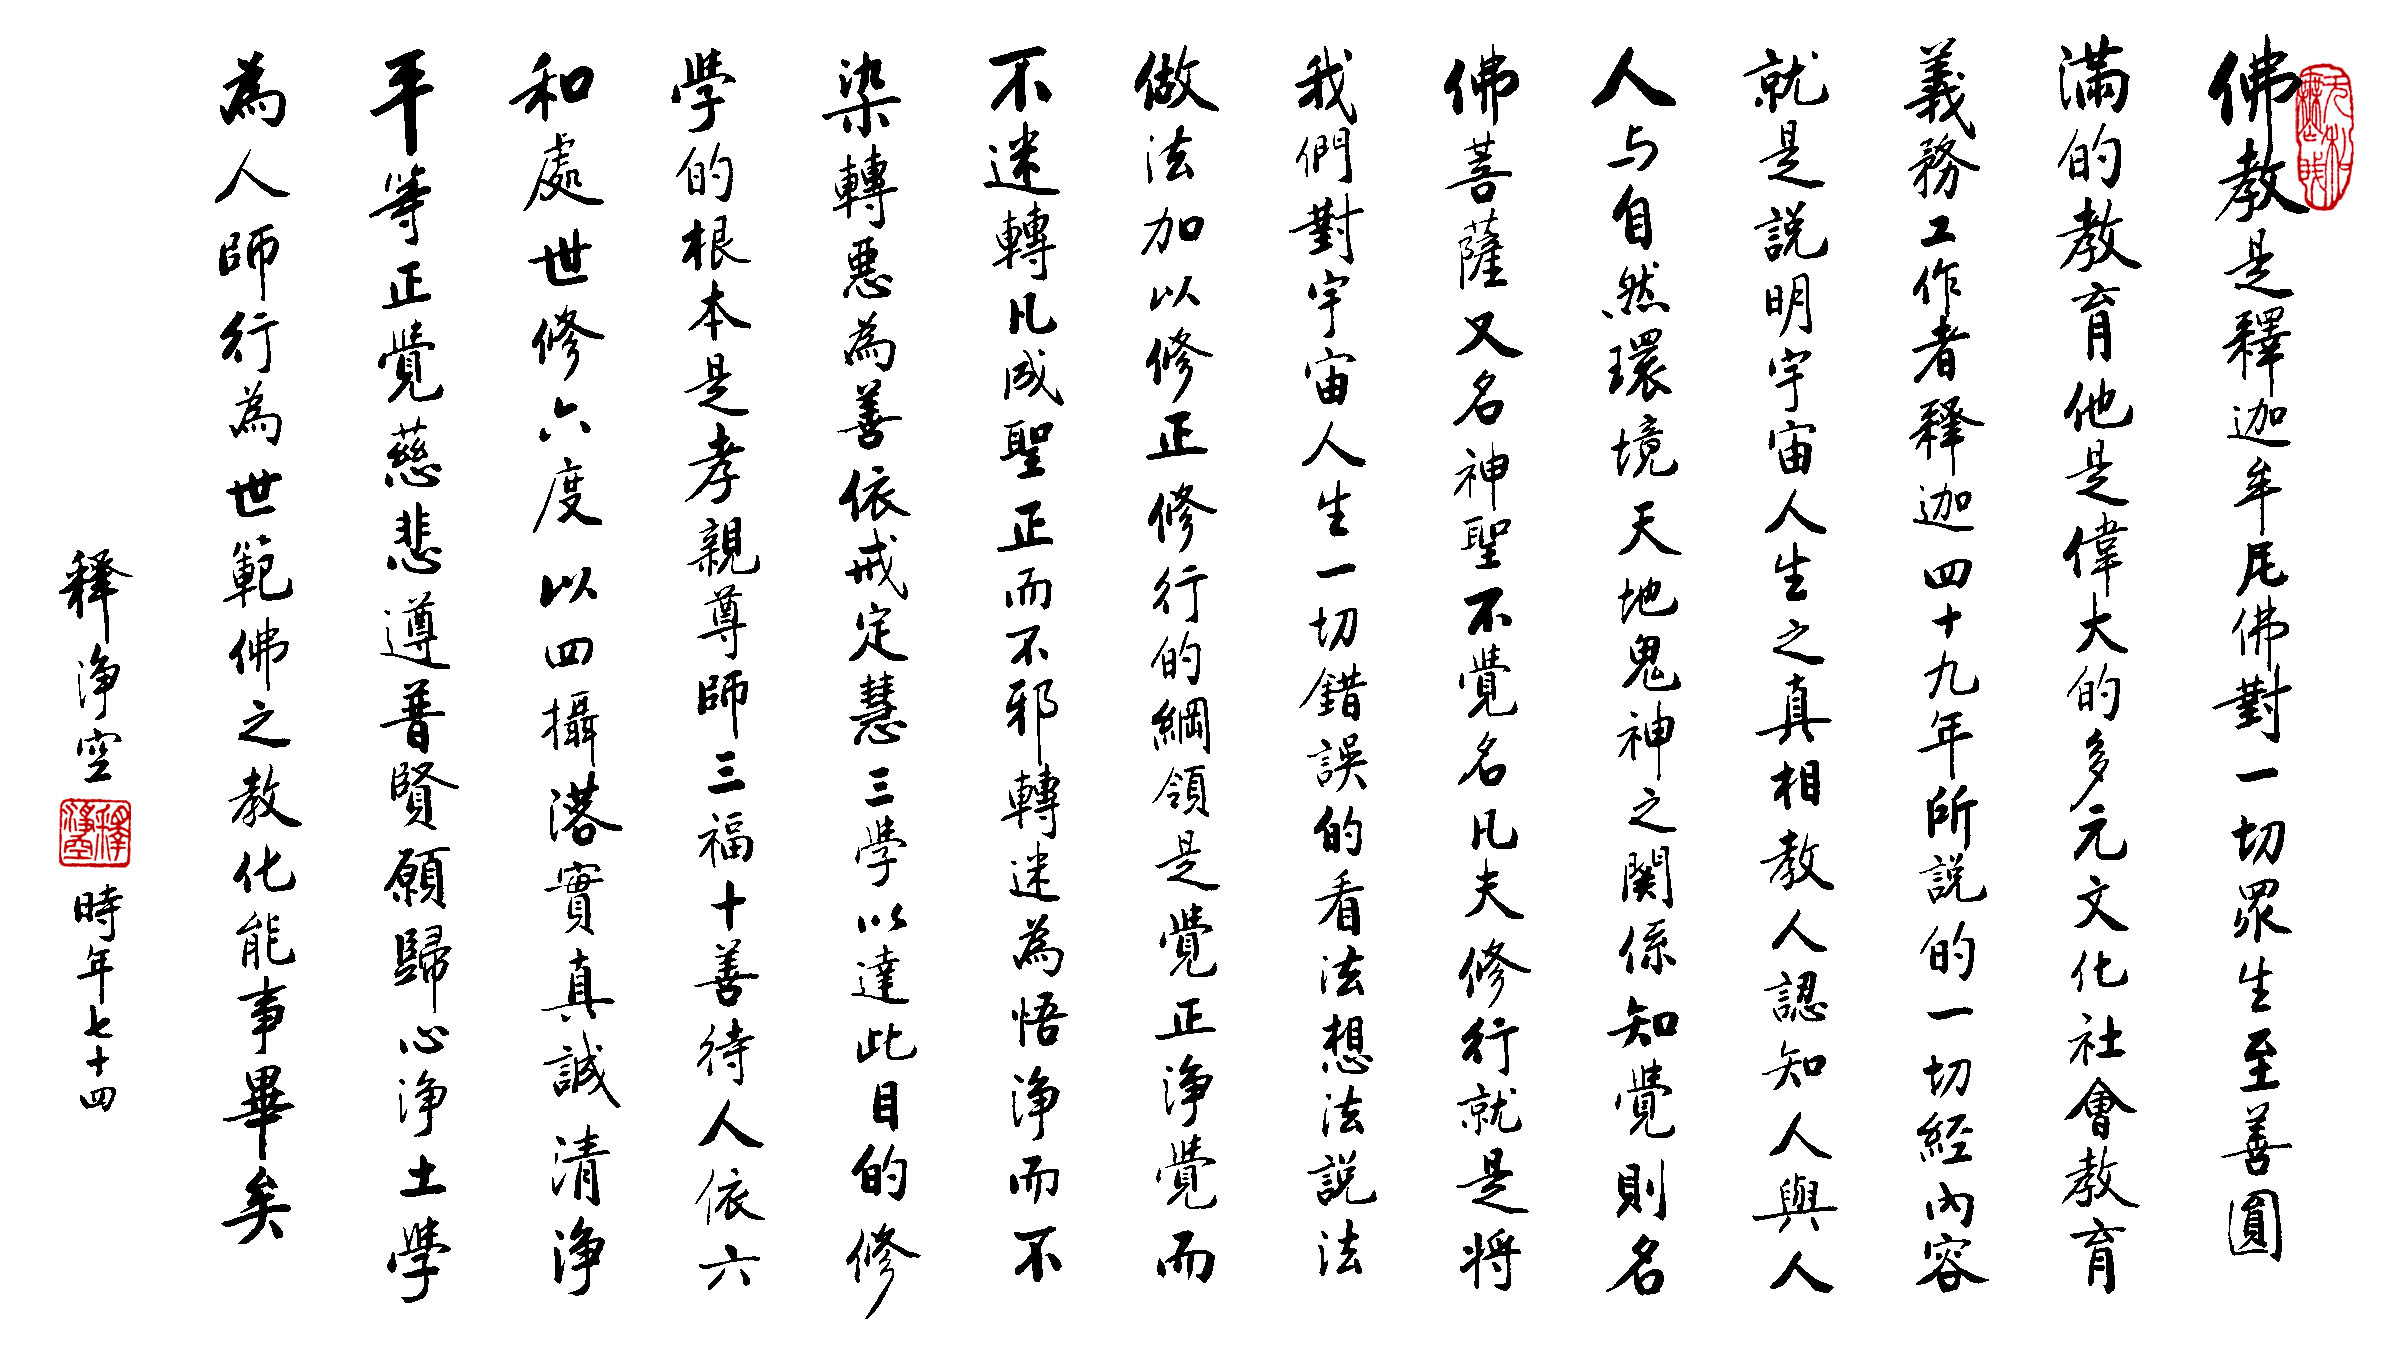 佛教是釋迦牟尼佛對一切眾生至善圓
滿的教育他是偉大的多元文化社會教育
義務工作者释迦四十九年所說的一切經內容
就是說明宇宙人生之真相教人認知人與人
人与自然環境天地鬼神之関係知覺則名
佛菩薩又名神聖不覺名凡夫修行就是将
我們對宇宙人生一切錯誤的看法想法說法
做法加以修正修行的綱領是覺正淨覺而
不迷轉凡成聖正而不邪轉迷為悟淨而不
染轉惡為善依戒定慧三學以達此目的修
學的根本是孝親尊師三福十善待人依六
和處世修六度以四攝落實真誠清淨
平等正覺慈悲遵普賢願歸心淨土學
為人師行為世範佛之教化能事畢矣
释淨空
釋淨空
時年七十四